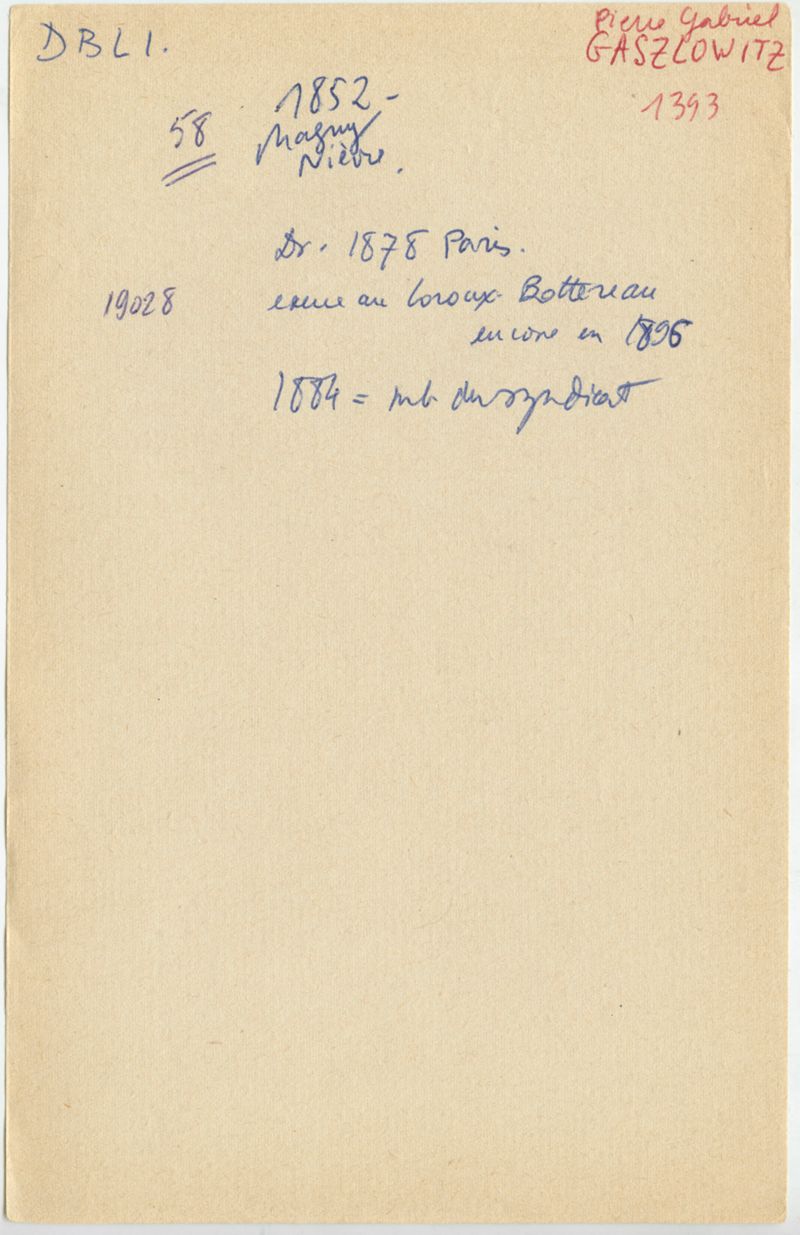 DBLI.
Pierre Gabriel
GASZLOWITZ
1393
1852 -
58
Magny
Nièvre.
Dr. 1878 Paris.
19028
exerce au Loroux-Bottereau
encore en 1896
1884 = mb du syndicat